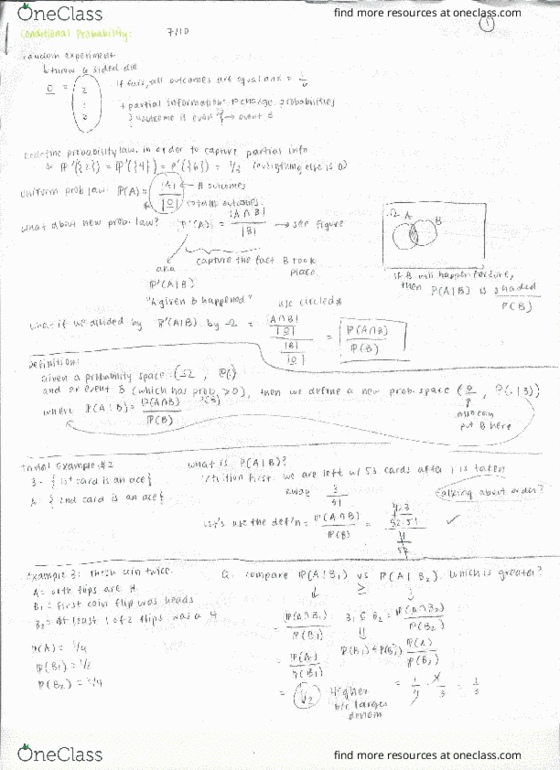 OneClass
find more resources at oneclass.com
Conditional Probability:
7/10
1
random experiment
↳ throw 6 sided die
if fair, all outcomes are equal and = 1/6
+ partial information: P change probabilities
outcome is even → event
redefine probability law in order to capture partial info
P'({2}) = P'({4}) = P'({6}) = 1/3 (everything else is 0)
Uniform prob law: P(A) = |A| / |Ω|
# outcomes
total outcomes
What about new prob. law? P'(A) = |A∩B| / |B| → see figure
Ω A B
capture the fact B took place.
aka
P'(A|B)
"A given B happened"
if B will happen for sure,
then P(A|B) is shaded / P(B)
use circled
what if we divided P'(A|B) by Ω = |A∩B| / |Ω| / |B| / |Ω| = P(A∩B) / P(B)
Definition:
Given a probability space (Ω, P(·))
and an event B (which has prob >0), then we define a new prob. space (Ω, P(·|B))
where P(A|B) = P(A∩B) / P(B)
also can put B here
Trivial Example #2
What is P(A|B)?
B = {1st card is an ace}
Intuition first: we are left w/ 53 cards after 1 is taken
A = {2nd card is an ace}
away 3/51
Talking about order?
Let's use the def'n = P(A∩B) / P(B) = 4·3 / 52·51 / 4 / 52 ✓
Example 3: Throw coin twice.
Q: compare P(A|B₁) vs P(A|B₂). Which is greater?
A = both flips are H
B₁ = first coin flip was heads
B₂ = At least 1 of 2 flips was a H
P(A) = 1/4
P(B₁) = 1/2
P(B₂) = 3/4
= P(A∩B₁) / P(B₁)
B₁ ⊆ B₂
= P(A∩B₂) / P(B₂)
= P(A) / P(B₁)
P(B₁) < P(B₂)
P(A) / P(B₂)
= 1/2 Higher b/c larger denom
= 1/4 · 4/3 = 1/3
OneClass
find more resources at oneclass.com